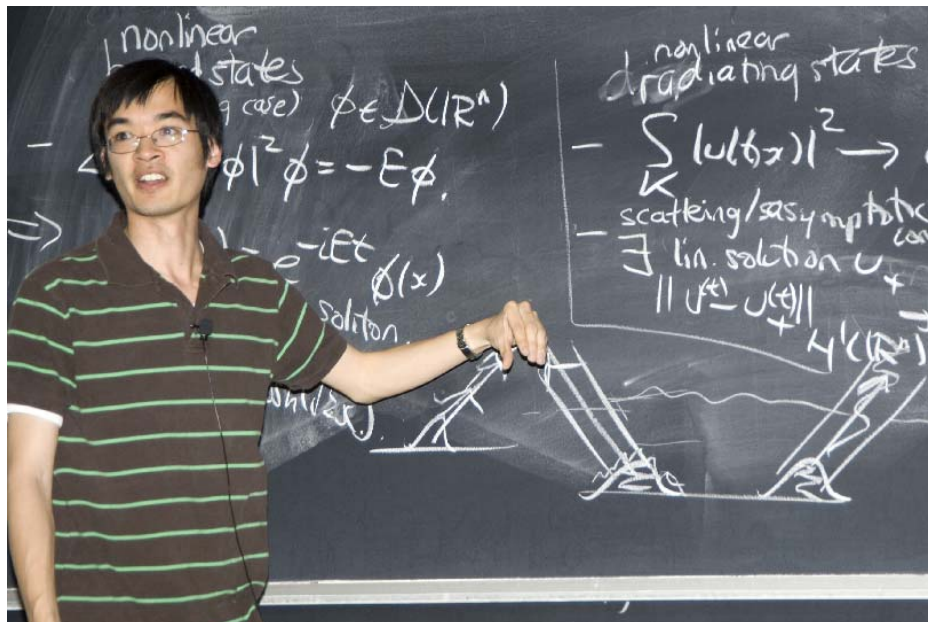 nonlinear
states
case) ϕ ∈ Δ(ℝⁿ)
- ϕ|² ϕ = -Eϕ.
⇒
e^{-iEt} ϕ(x)
soliton.
nonlinear
radiating states
- ∫_K |u(t,x)|² →
- scattering/asymptotic
∃ lin. solution u₊
||u(t) - u₊(t)|| →
H¹(ℝⁿ)